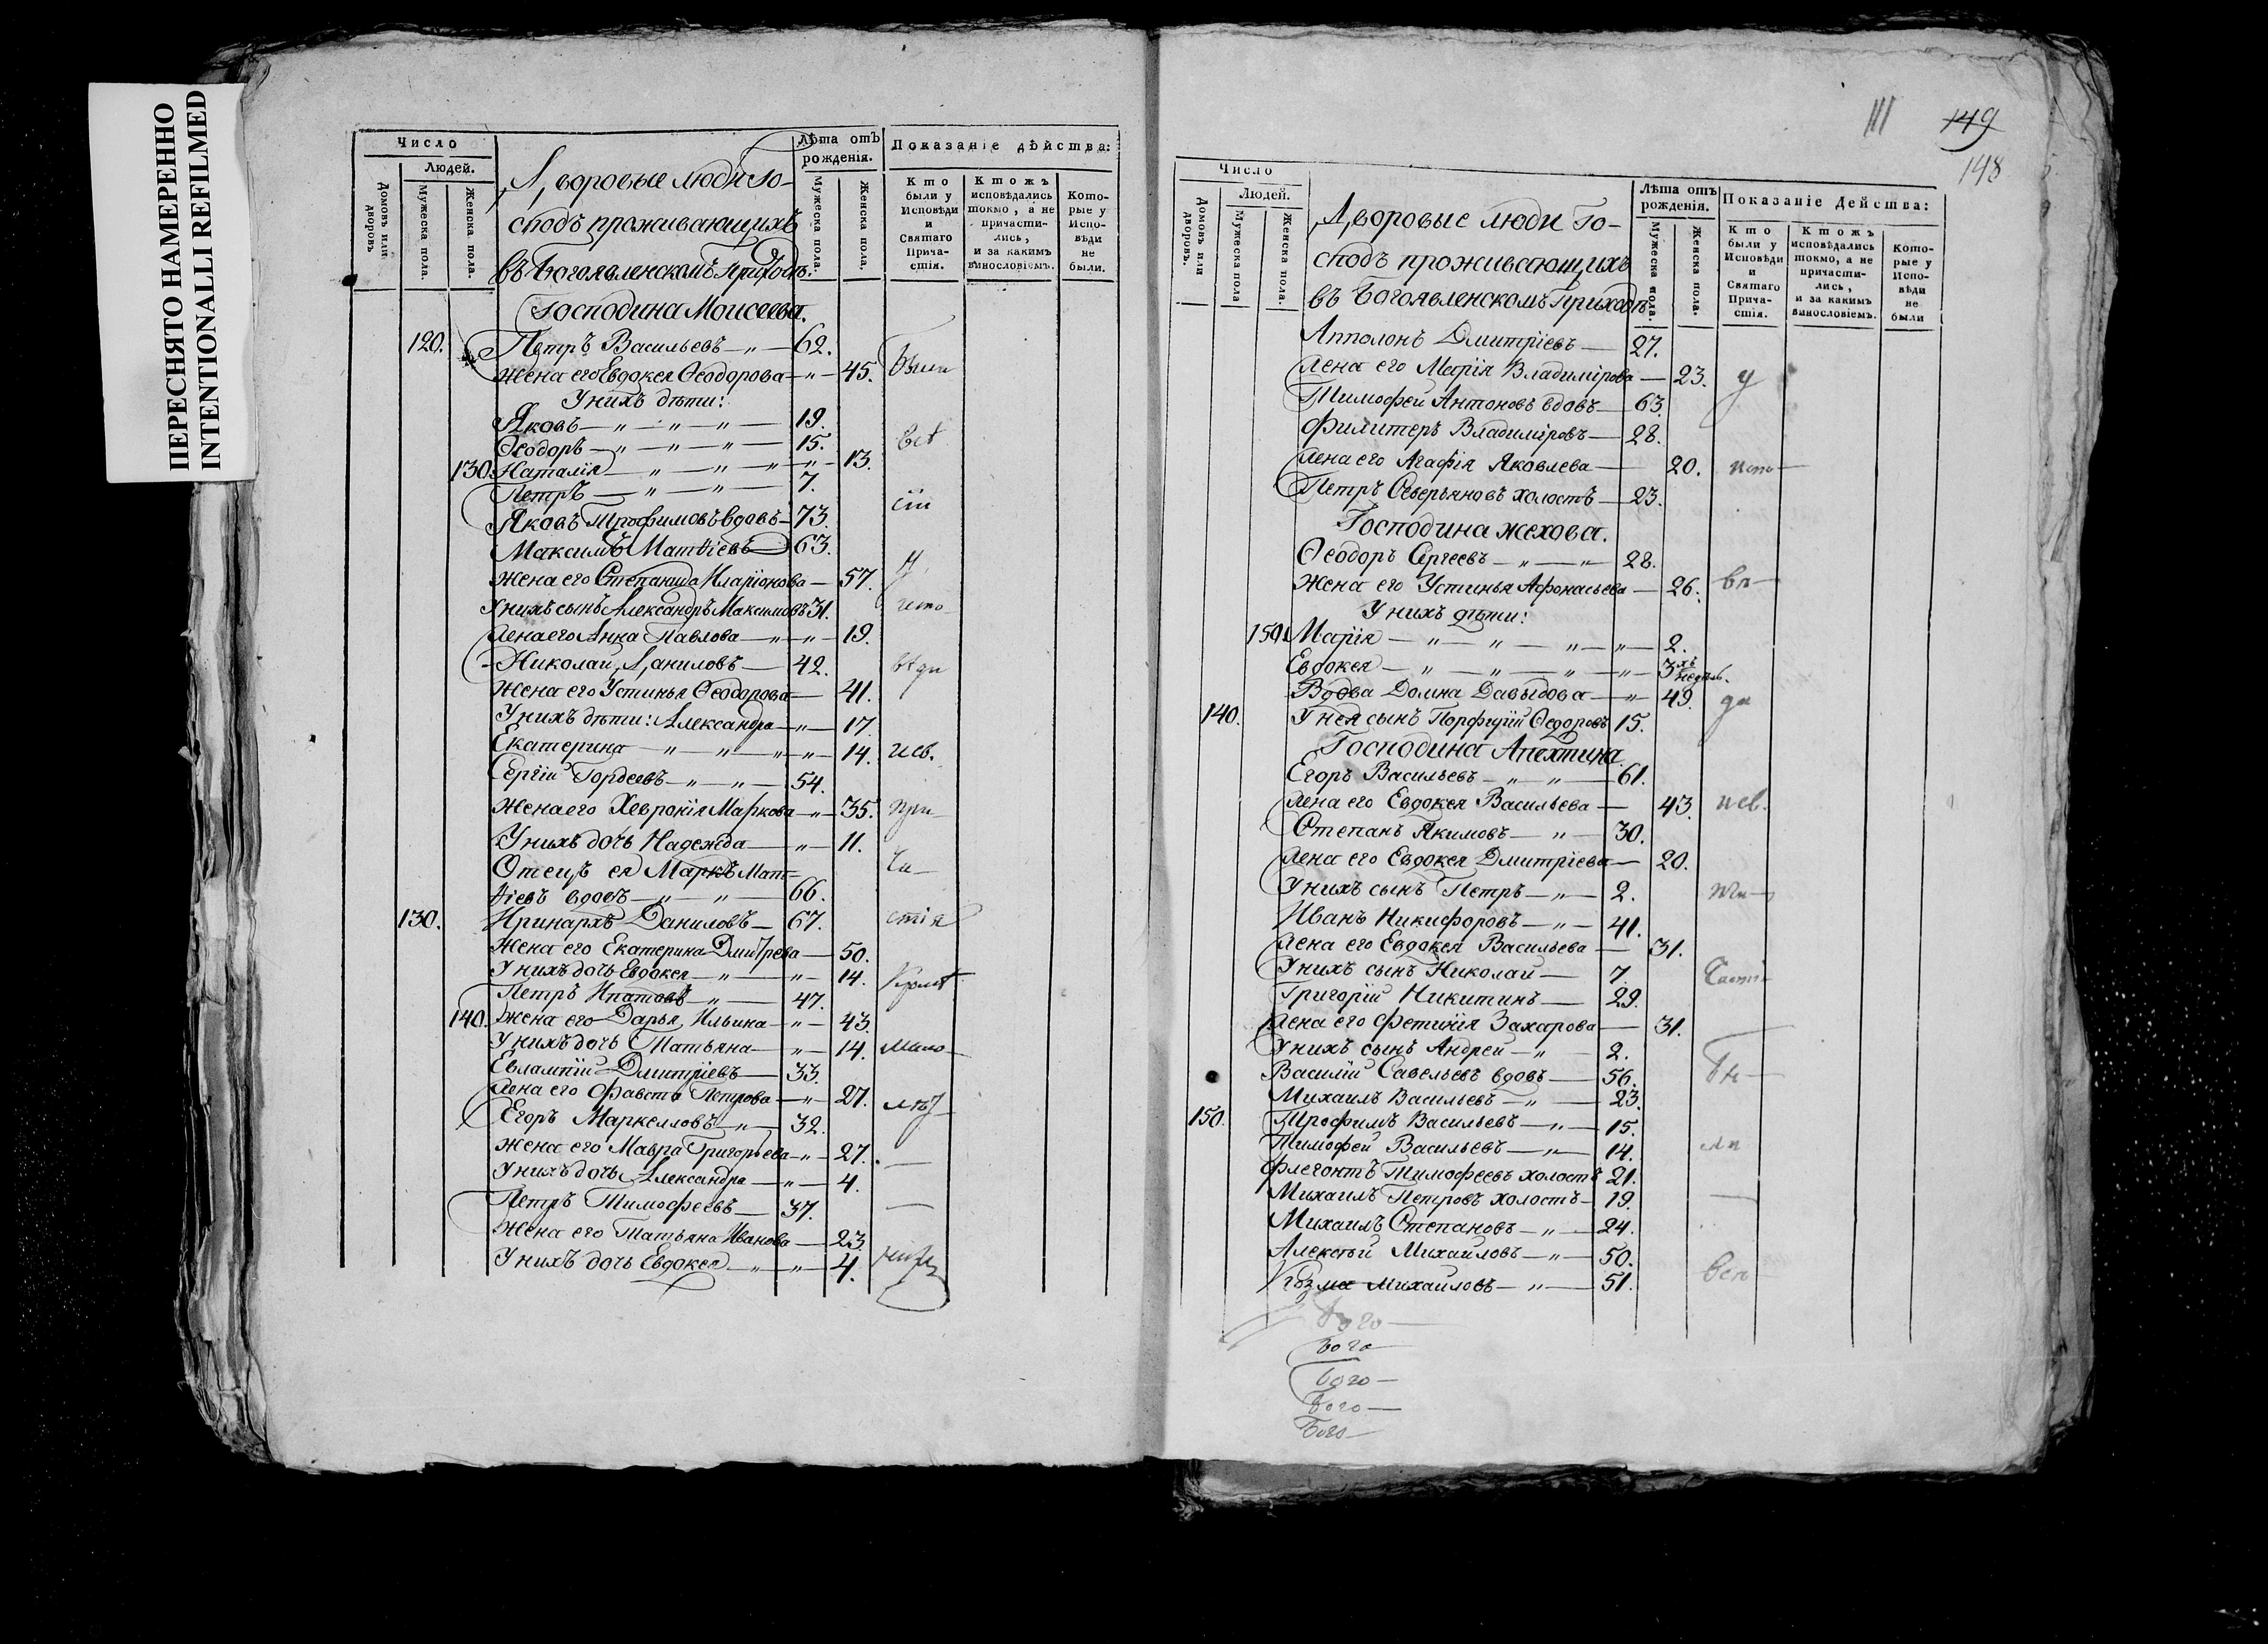 ПЕРЕСНЯТО НАМЕРЕННО
INTENTIONALLI REFILMED
Число
Людей.
Домовъ или дворовъ
Мужеска пола.
Женска пола.
Дворовые люди Го-
сподъ проживающихъ
въ Богоявленскомъ Приходѣ:
Лѣта отъ рожденія.
Мужеска пола.
Женска пола.
Показаніе дѣйства:
Кто были у Исповѣди и Святаго Причастія.
Ктожъ исповѣдались токмо, а не причастились, и за какимъ винословіемъ.
Которые у Исповѣди не были.
Господина Моисеева.
120. Петръ Васильевъ — „ — 62.
жена его Евдокея Ѳеодорова — „ — 45. Были
У нихъ дѣти:
Яковъ — „ — „ — „ — 19.
Ѳеодоръ — „ — „ — „ — 15. всѣ
130. Наталія — „ — „ — „ — 13.
Петръ — „ — „ — 7.
Яковъ Трофимовъ вдовъ — 73. сіи
Максимъ Матѳіевъ — 63.
жена его Степанида Иларіонова — 57. у
У нихъ сынъ Александръ Максимовъ 31. испо
Жена его Анна Павлова — „ — „ — 19.
Николай Даниловъ — 42. вѣди
жена его Устинья Ѳеодорова — 41.
У нихъ дѣти: Александра — „ — 17.
Екатерина — „ — „ — „ — „ — 14. исв.
Сергій Гордеевъ — „ — „ — 54.
жена его Хеврокія Маркова — „ — 35. при
У нихъ дочь Надежда — „ — 11.
Отецъ ея Маркъ Мат- ча
ѳіевъ вдовъ — „ — „ — 66.
130. Иринархъ Даниловъ — 67. стія
жена его Екатерина Дмитрева — 50.
У нихъ дочь Евдокея — „ — „ — 14. Кромѣ
Петръ Ипатовъ — „ — 47.
140. жена его Дарья Ильина — „ — 43.
У нихъ дочь Татьяна — „ — 14. мало
Евлампій Дмитріевъ — 33.
Жена его Фавста Петрова — „ — 27. лѣт
Егоръ Маркелловъ — „ — 32.
жена его Мавра Григорьева — „ — 27.
У нихъ дочь Александра — „ — 4.
Петръ Тимофеевъ — 37.
жена его Татьяна Иванова — 23.
У нихъ дочь Евдокея — „ — „ — 4.
111 149
148
Число
Людей.
Домовъ или дворовъ.
Мужеска пола
Женска пола.
Дворовые люди Го-
сподъ проживающихъ
въ Богоявленскомъ Приходѣ.
Лѣта отъ рожденія.
Мужеска пола.
Женска пола.
Показаніе Действа:
Кто были у Исповѣди и Святаго Причастія.
Ктожъ исповѣдались токмо, а не причастились, и за какимъ винословіемъ.
Которые у Исповѣди не были
Апполонъ Дмитріевъ — 27.
Жена его Марія Владимірова — 23. у
Тимофей Антоновъ вдовъ — 63.
Филитеръ Владиміровъ — 28.
Жена его Агафія Яковлева — 20. испо
Петръ Северьяновъ холостъ — 23.
Господина Жехова.
Ѳеодоръ Сергеевъ — „ — „ — 28.
Жена его Устинья Афонасьева — 26. вѣ
У нихъ дѣти:
150. Марія — „ — „ — „ — „ — 2.
Евдокея — „ — „ — „ — „ — 3хъ недѣль.
Вдова Домна Давыдова — „ — 49. ди
140. У нея сынъ Порфирій Ѳедоровъ 15.
Господина Апехтина.
Егоръ Васильевъ — „ — „ — 61.
Жена его Евдокея Васильева — 43. исв.
Степанъ Якимовъ — „ — 30.
Жена его Евдокея Дмитріева — 20.
У нихъ сынъ Петръ — „ — 2. при
Иванъ Никифоровъ — „ — 41.
Жена его Евдокея Васильева — 31.
У нихъ сынъ Николай — 7. части
Григорій Никитинъ — 29.
Жена его Фетинія Захарова — 31.
У нихъ сынъ Андрей — „ — 2.
Василій Савельевъ вдовъ — 56.
Михаилъ Васильевъ — „ — 23.
150. Трофимъ Васильевъ — „ — 15.
Тимофей Васильевъ — „ — 14.
Флегонтъ Тимофеевъ холостъ 21.
Михаилъ Петровъ холостъ — 19.
Михаилъ Степановъ — „ — 24.
Алексѣй Михайловъ — „ — 50.
Козма Михайловъ — „ — 51.
Бого —
Бого
Бого —
Бого —
Бого